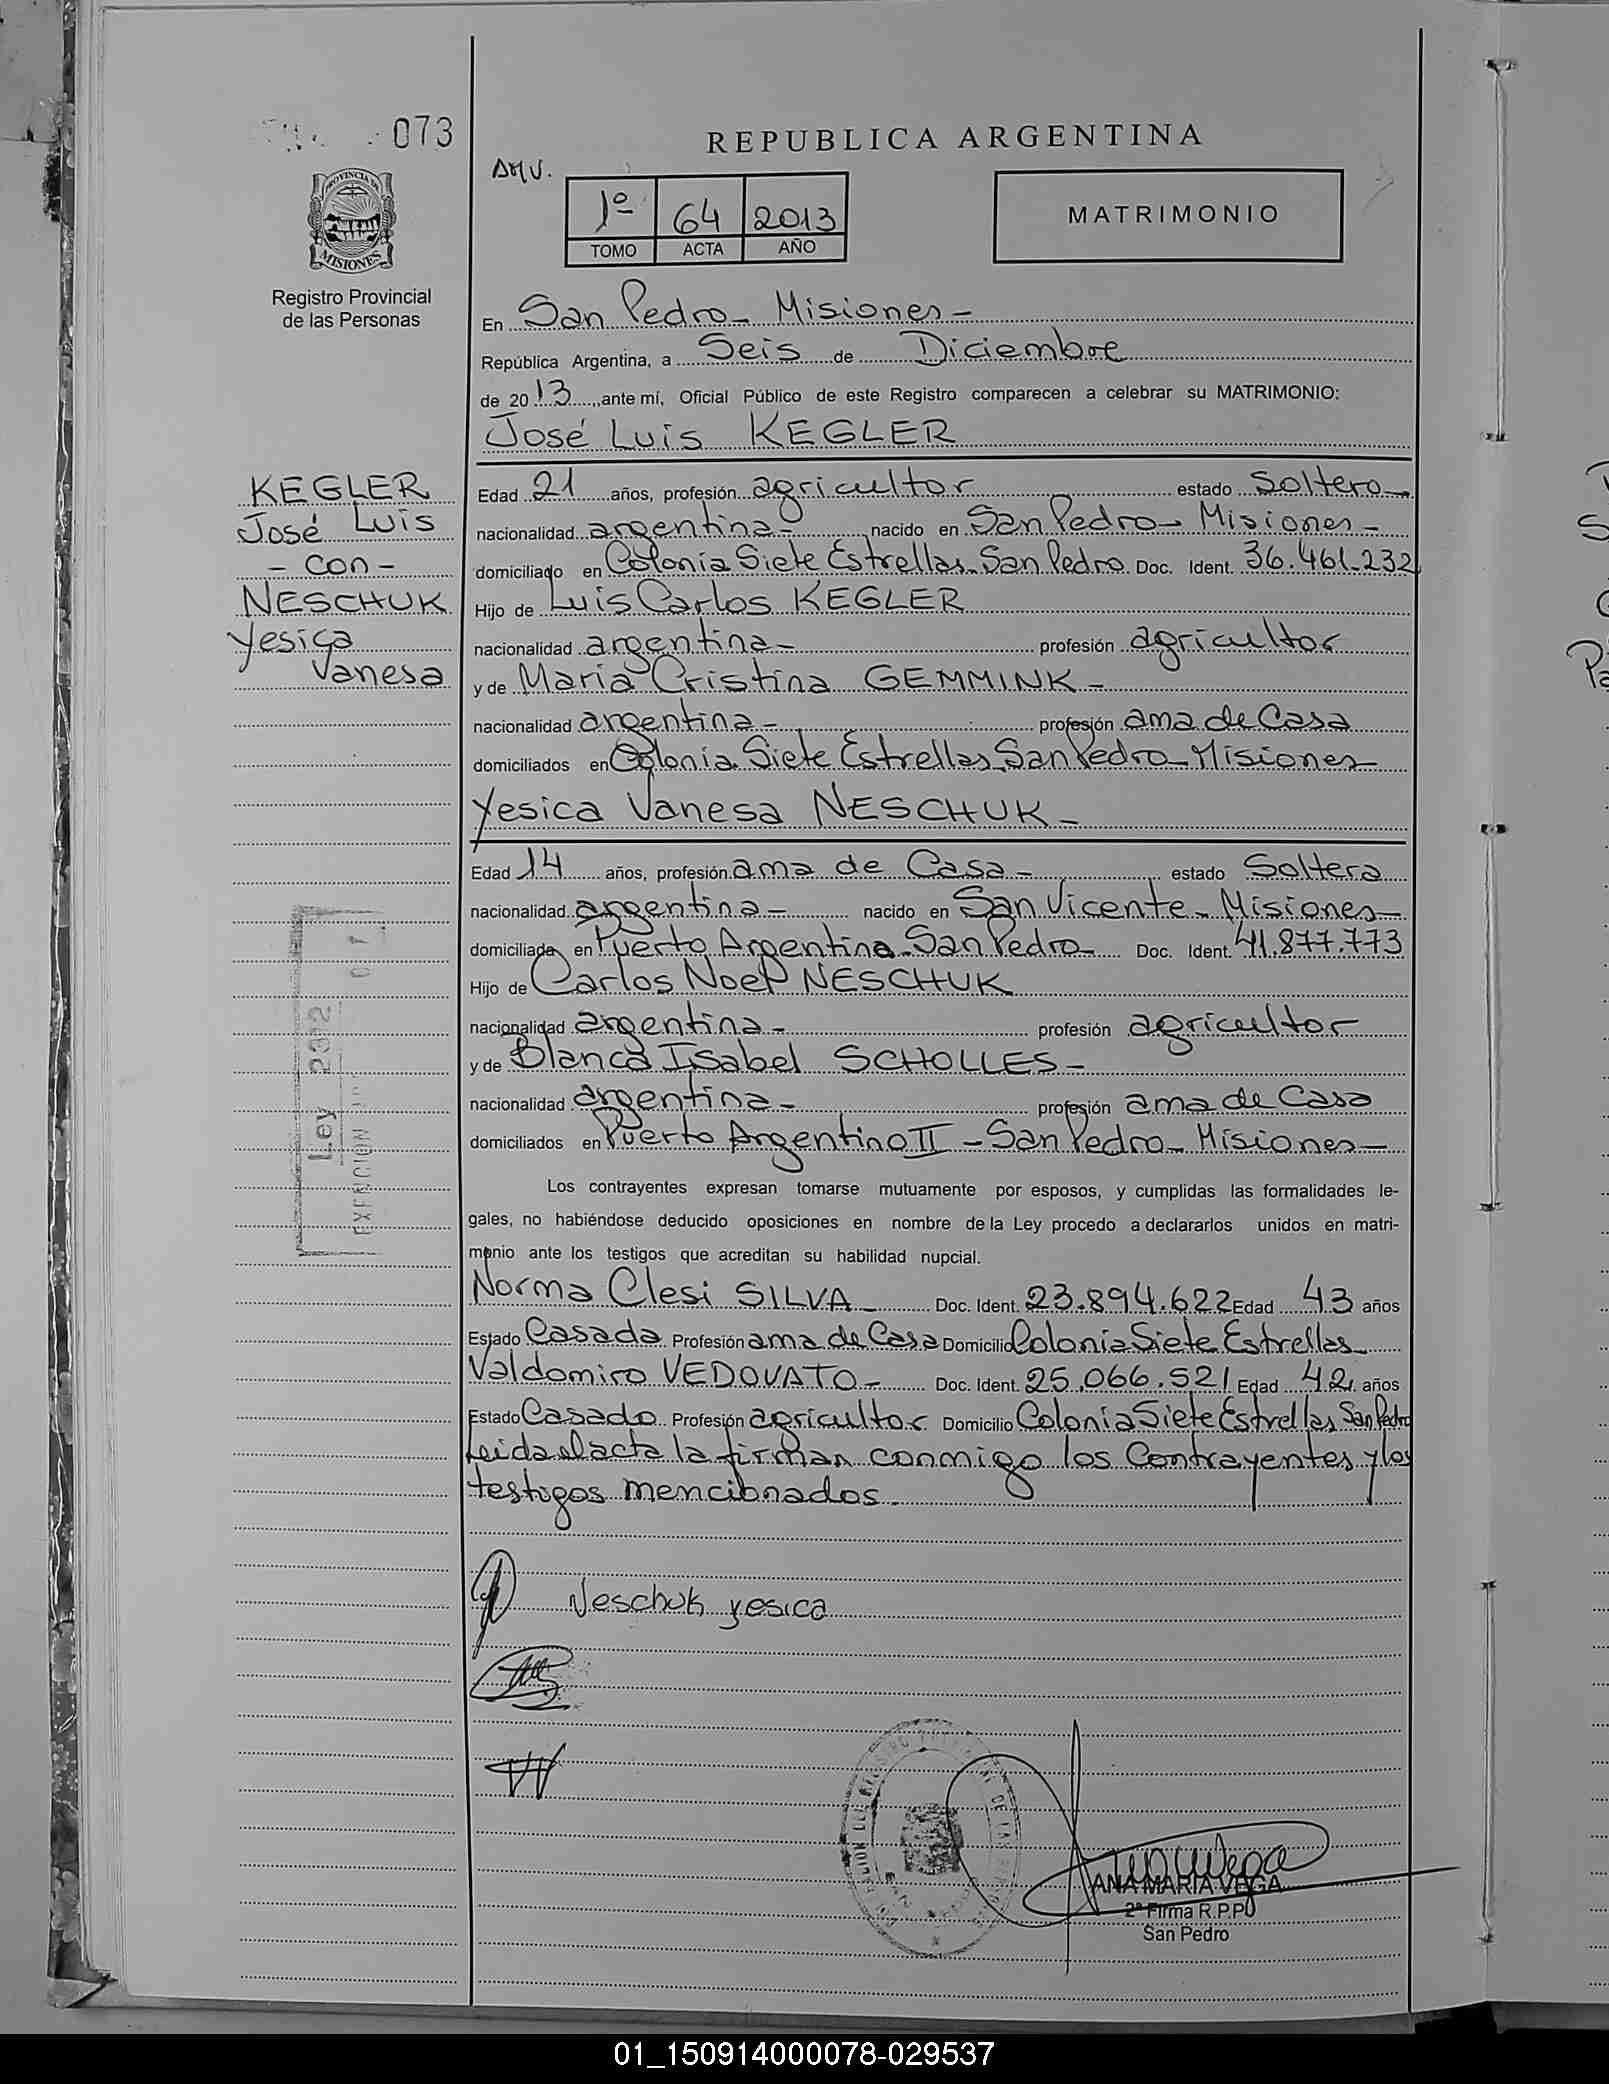 073
REPUBLICA ARGENTINA
AMV.
1º 64 2013
TOMO ACTA AÑO
MATRIMONIO
PROVINCIA DE
MISIONES
Registro Provincial
de las Personas
En San Pedro - Misiones -
República Argentina, a Seis de Diciembre
de 20 13 ,ante mí, Oficial Público de este Registro comparecen a celebrar su MATRIMONIO:
José Luis KEGLER
KEGLER
José Luis
- con -
NESCHUK
Yesica
Vanesa
Edad 21 años, profesión agricultor estado Soltero -
nacionalidad argentina - nacido en San Pedro - Misiones -
domiciliado en Colonia Siete Estrellas - San Pedro Doc. Ident. 36.461.232
Hijo de Luis Carlos KEGLER
nacionalidad argentina - profesión agricultor
y de María Cristina GEMMINK -
nacionalidad argentina - profesión ama de Casa
domiciliados en Colonia Siete Estrellas San Pedro - Misiones
Yesica Vanesa NESCHUK -
Edad 14 años, profesión ama de Casa - estado Soltera
nacionalidad argentina - nacido en San Vicente - Misiones -
domiciliada en Puerto Argentina - San Pedro - Doc. Ident. 41.877.773
Hijo de Carlos Noel NESCHUK
nacionalidad argentina - profesión agricultor
y de Blanca Isabel SCHOLLES -
nacionalidad argentina - profesión ama de Casa
domiciliados en Puerto Argentino II - San Pedro - Misiones -
Ley 2302
EXENCION
Los contrayentes expresan tomarse mutuamente por esposos, y cumplidas las formalidades le-
gales, no habiéndose deducido oposiciones en nombre de la Ley procedo a declararlos unidos en matri-
monio ante los testigos que acreditan su habilidad nupcial.
Norma Clesi SILVA - Doc. Ident. 23.894.622 Edad 43 años
Estado Casada Profesión ama de Casa Domicilio Colonia Siete Estrellas
Valdomiro VEDOVATO - Doc. Ident. 25.066.521 Edad 42 años
Estado Casado Profesión agricultor Domicilio Colonia Siete Estrellas San Pedro
Leida el acta la firman conmigo los Contrayentes y los
testigos mencionados.
Neschuk yesica
ANA MARIA VEGA
2ª Firma R.P.P.
San Pedro
01_150914000078-029537